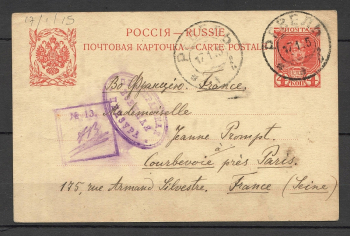 19/1/15
РОССІЯ–RUSSIE
ПОЧТОВАЯ КАРТОЧКА–CARTE POSTALE
РЕВЕЛЬ
РЕВЕЛЬ
Во Францію. France.
Mademoiselle
№ 13.
Jeanne Prompt
à
Courbevoie près Paris.
175, rue Armand Silvestre. France (Seine)